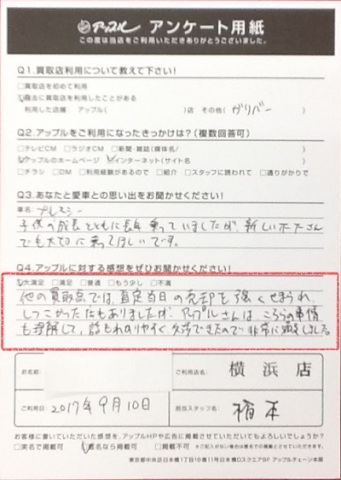 アップル アンケート用紙
この度は当店をご利用いただきありがとうございました。
Q1.買取店利用について教えて下さい！
□買取を初めて利用
☑過去に買取を利用したことがある
利用した店舗 アップル( )店 その他( ガリバー )
Q2.アップルをご利用になったきっかけは？(複数回答可)
□テレビCM □ラジオCM □新聞・雑誌(媒体名/ )
☑アップルのホームページ ☑インターネット(サイト名 )
□チラシ □DM □利用経験があるので □紹介 □スタッフに誘われて □通りがかりで
Q3.あなたと愛車との思い出をお聞かせください！
車名: プレマシー
子供の成長とともに長年乗っていましたが、新しいオーナーさん
でも大切に乗ってほしいです。
Q4.アップルに対する感想をぜひお聞かせください！
☑大満足 □満足 □普通 □もう少し □不満
他の買取店では、査定当日の売却を強くせまられ
しつこかった店もありましたが、アップルさんは、こちらの事情
も理解して、話もわかりやすく交渉できたので非常に満足しました
お名前:
ご利用店名: 横浜店
ご利用日: 2017年9月10日
担当スタッフ名:
お客様に書いていただいた感想を、アップルHPや広告に掲載させていただいてもよろしいでしょうか？
□実名で掲載可 ☑匿名なら掲載可 □掲載不可
東京都中央区日本橋1丁目16番11号日本橋DスクエアBF アップルチェーン本部